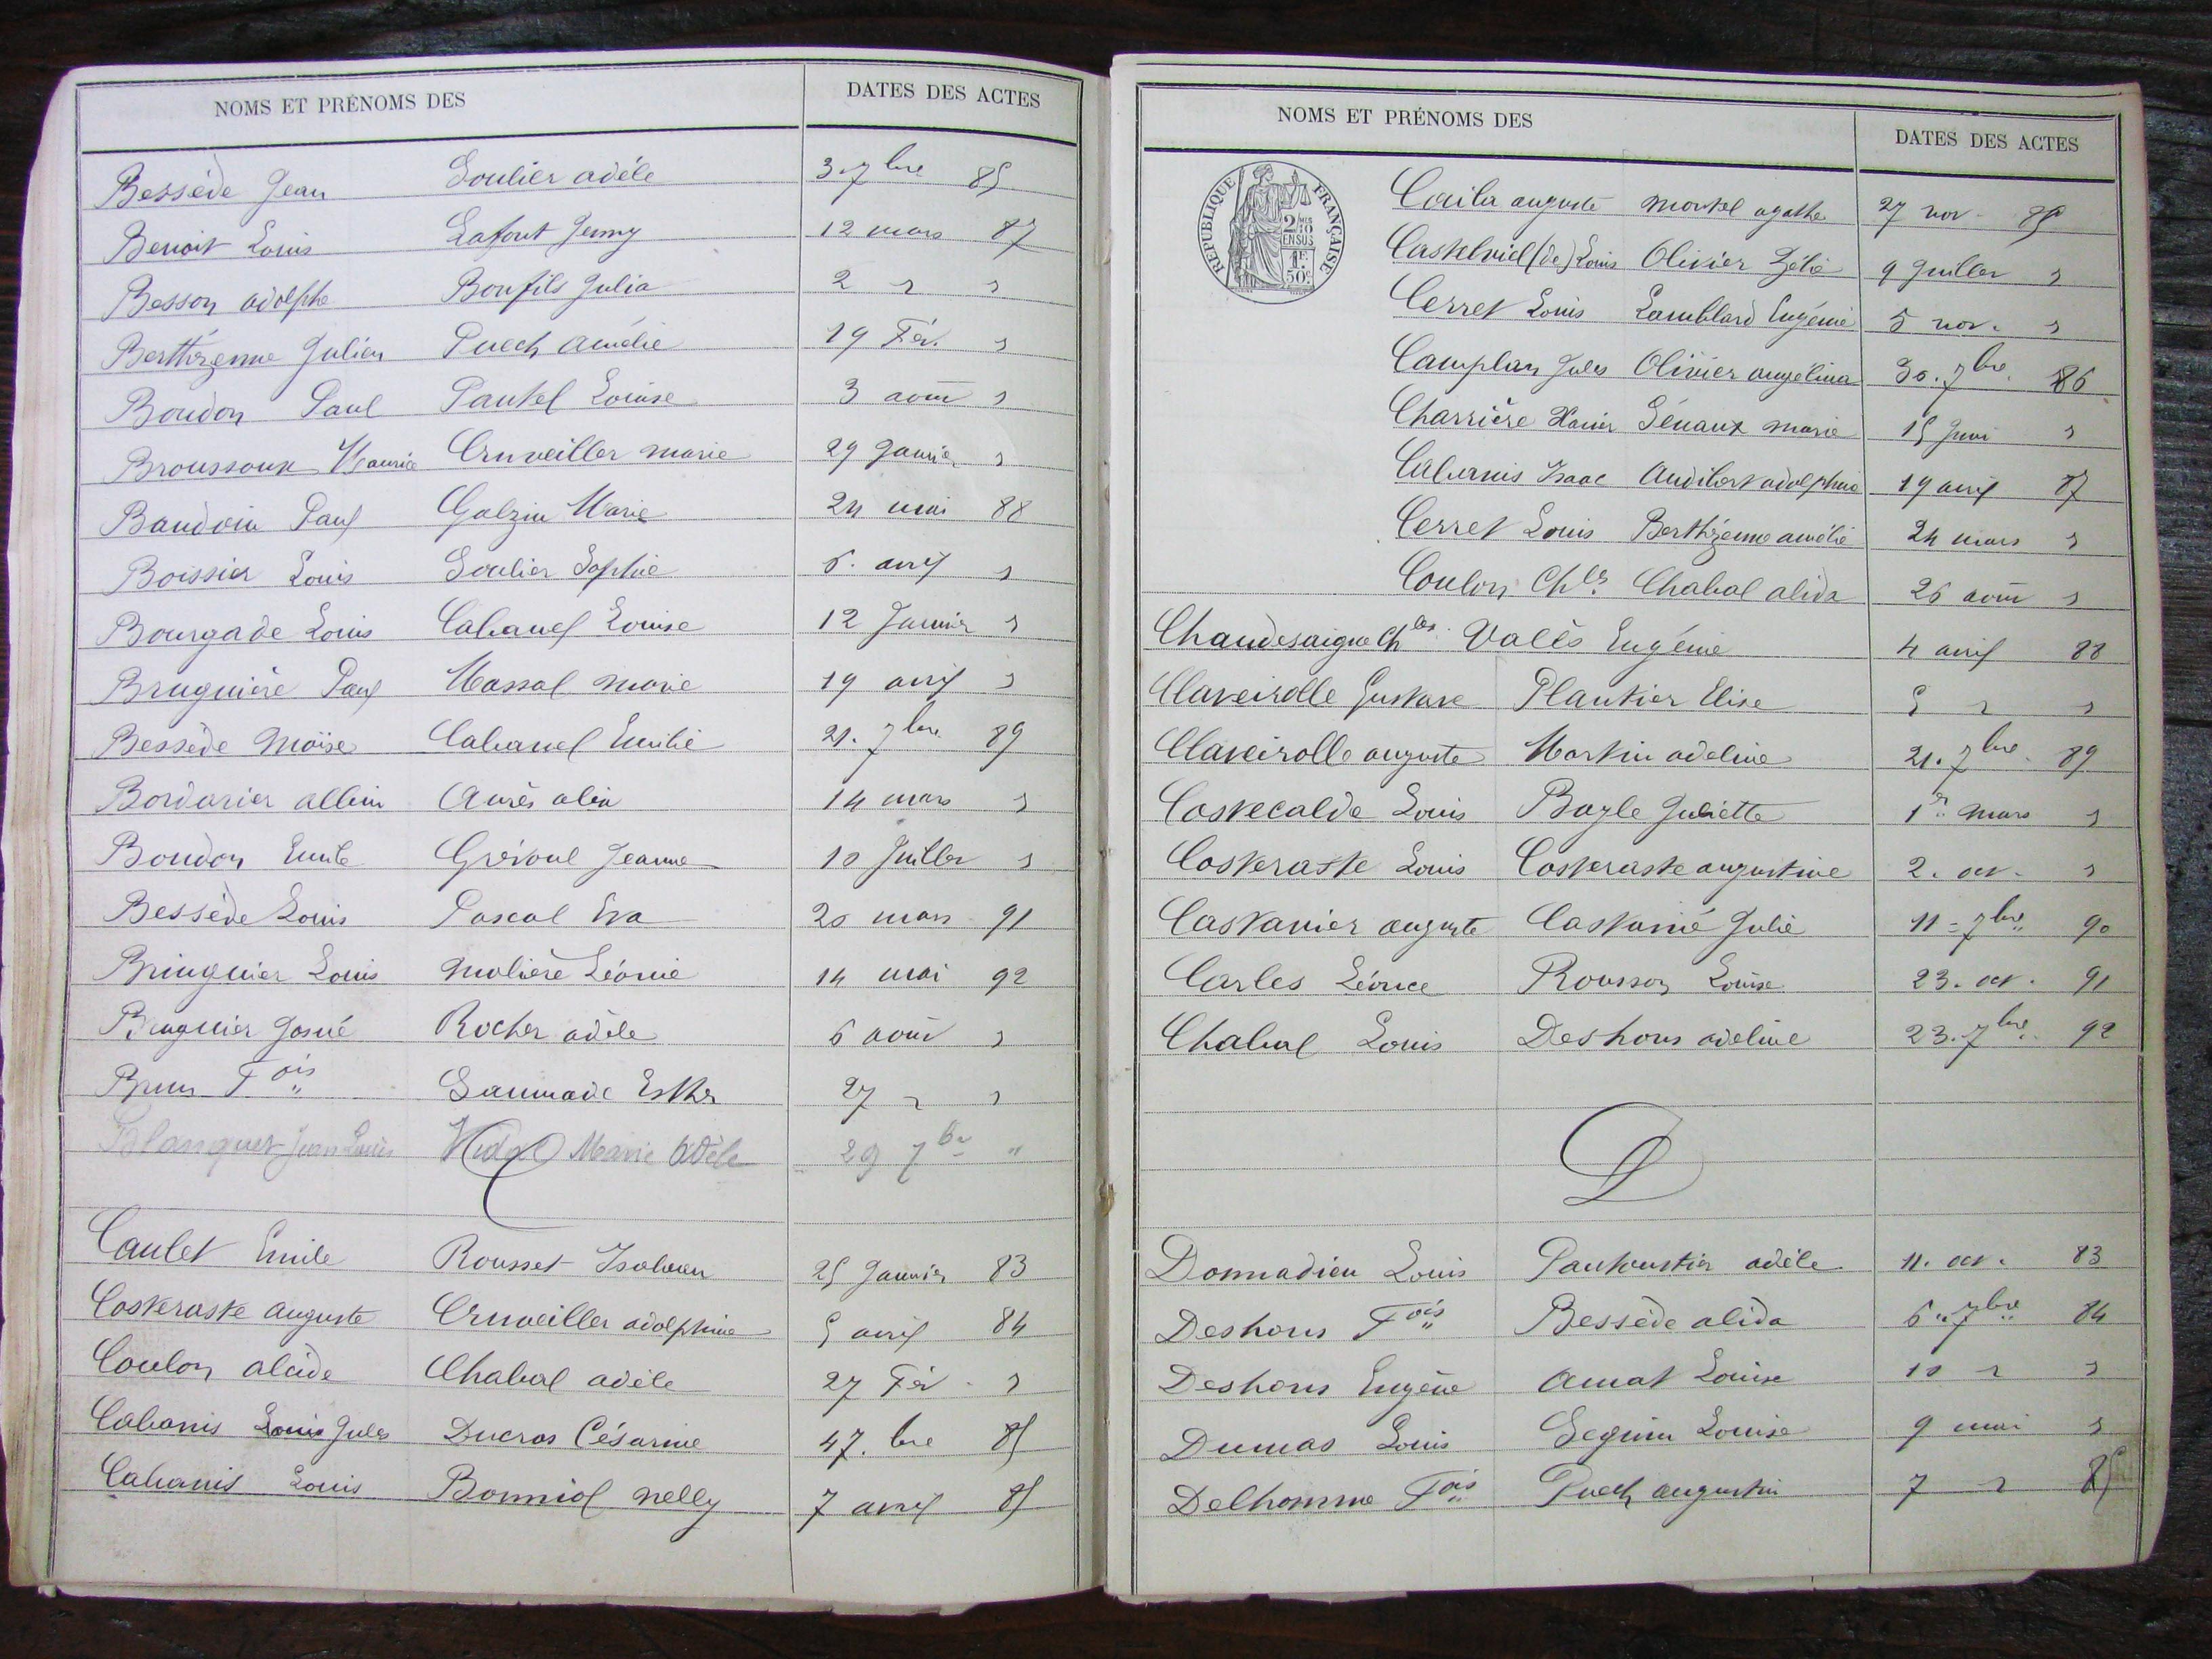 NOMS ET PRÉNOMS DES DATES DES ACTES
Bessède Jean Soulier adèle 3. 7bre 85
Benoit Louis Lafont Jenny 12 mars 87
Besson adolphe Bonfils Julia 2 " "
Berthézenne Julien Puech amélie 19 Fév. "
Boudon Paul Pantel Louise 3 août "
Broussoux Maurice Cruveiller marie 29 Janvier "
Baudoin Paul Galzin Marie 24 mai 88
Boissier Louis Soulier Sophie 6. avril "
Bourgade Louis Cabanel Louise 12 Janvier "
Bruguière Paul Massal marie 19 avril "
Bessède Moïse Cabanel Emilie 21. 7bre 89
Bordarier albin Aurès alix 14 mars "
Boudon Emile Grévoul Jeanne 10 Juillet "
Bessède Louis Pascal Eva 20 mars 91
Bringuier Louis Molière Léonie 14 mai 92
Bruguier Josué Rocher adèle 6 août "
Brun Fois Saumade Esther 27 " "
Blanquet Jean Louis Vidal Marie Adèle 29 7bre "
C
Caulet Emile Rousset Isabeau 25 Janvier 83
Costeraste auguste Cruveiller adolphine 5 avril 84
Coulon alcide Chabal adèle 27 Fév. "
Cabanis Louis Jules Ducros Césarine 4 7.bre 85
Cabanis Louis Bonniol Nelly 7 avril 85
NOMS ET PRÉNOMS DES DATES DES ACTES
RÉPUBLIQUE FRANÇAISE
2/10 EN SUS
1F. 50c.
Caila auguste Martel agathe 27 nov. 85
Castelviel (de) Louis Olivier Zélie 9 Juillet "
Cerret Louis Lamblard Eugénie 5 nov. "
Camplan Jules Olivier angélina 30. 7bre. 86
Charrière Xavier Sénaux marie 15 Juin "
Cabanis Isaac Audibert adolphine 19 avril 87
Cerret Louis Berthézenne amélie 24 mars "
Coulon Chles Chabal alida 26 août "
Chaudesaigue Chles. Valès Eugénie 4 avril 88
Claveirolle Gustave Plantier Elise 5 " "
Claveirolle auguste Martin adeline 21. 7bre. 89
Costecalde Louis Bayle Juliette 1er mars "
Costeraste Louis Costeraste augustine 2. oct. "
Castanier auguste Castanié Julie 11 = 7bre 90
Carles Léonce Rousson Louise 23. oct. 91
Chabal Louis Deshons adeline 23. 7bre. 92
D
Donnadieu Louis Pantoustier adèle 11. oct. 83
Deshons Fois Bessède alida 6. 7bre 84
Deshons Eugène amat Louise 10 " "
Dumas Louis Seguin Louise 9 mai "
Delhomme Fois Puech augustin 7 " 85